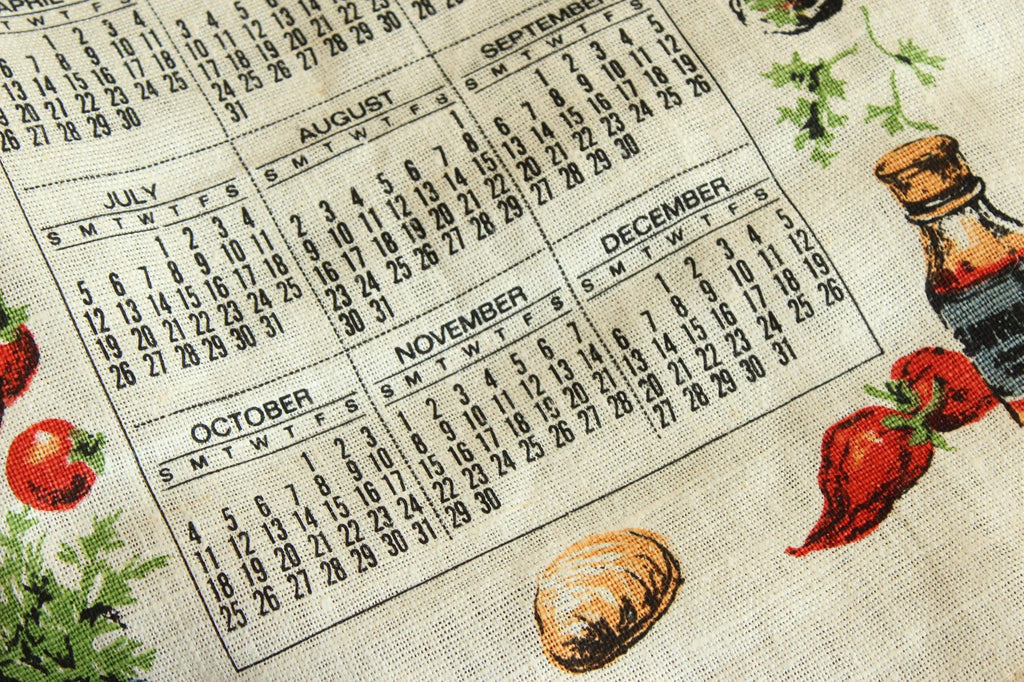 APRIL
T F S
1 2 3 4
6 7 8 9 10 11
13 14 15 16 17 18
20 21 22 23 24 25
26 27 28 29 30
3 4 5
10 11 12 13 14
17 18 19 20 21 22
24 25 26 27 28 29
31
28
JULY
S M T W T F S
1 2 3 4
5 6 7 8 9 10 11
12 13 14 15 16 17 18
19 20 21 22 23 24 25
26 27 28 29 30 31
AUGUST
S M T W T F S
1
2 3 4 5 6 7 8
9 10 11 12 13 14 15
16 17 18 19 20 21 22
23 24 25 26 27 28 29
30 31
SEPTEMBER
S M T W T F S
1 2 3 4 5
6 7 8 9 10 11 12
13 14 15 16 17 18 19
20 21 22 23 24 25 26
27 28 29 30
OCTOBER
S M T W T F S
1 2 3
4 5 6 7 8 9 10
11 12 13 14 15 16 17
18 19 20 21 22 23 24
25 26 27 28 29 30 31
NOVEMBER
S M T W T F S
1 2 3 4 5 6 7
8 9 10 11 12 13 14
15 16 17 18 19 20 21
22 23 24 25 26 27 28
29 30
DECEMBER
S M T W T F S
1 2 3 4 5
6 7 8 9 10 11 12
13 14 15 16 17 18 19
20 21 22 23 24 25 26
27 28 29 30 31